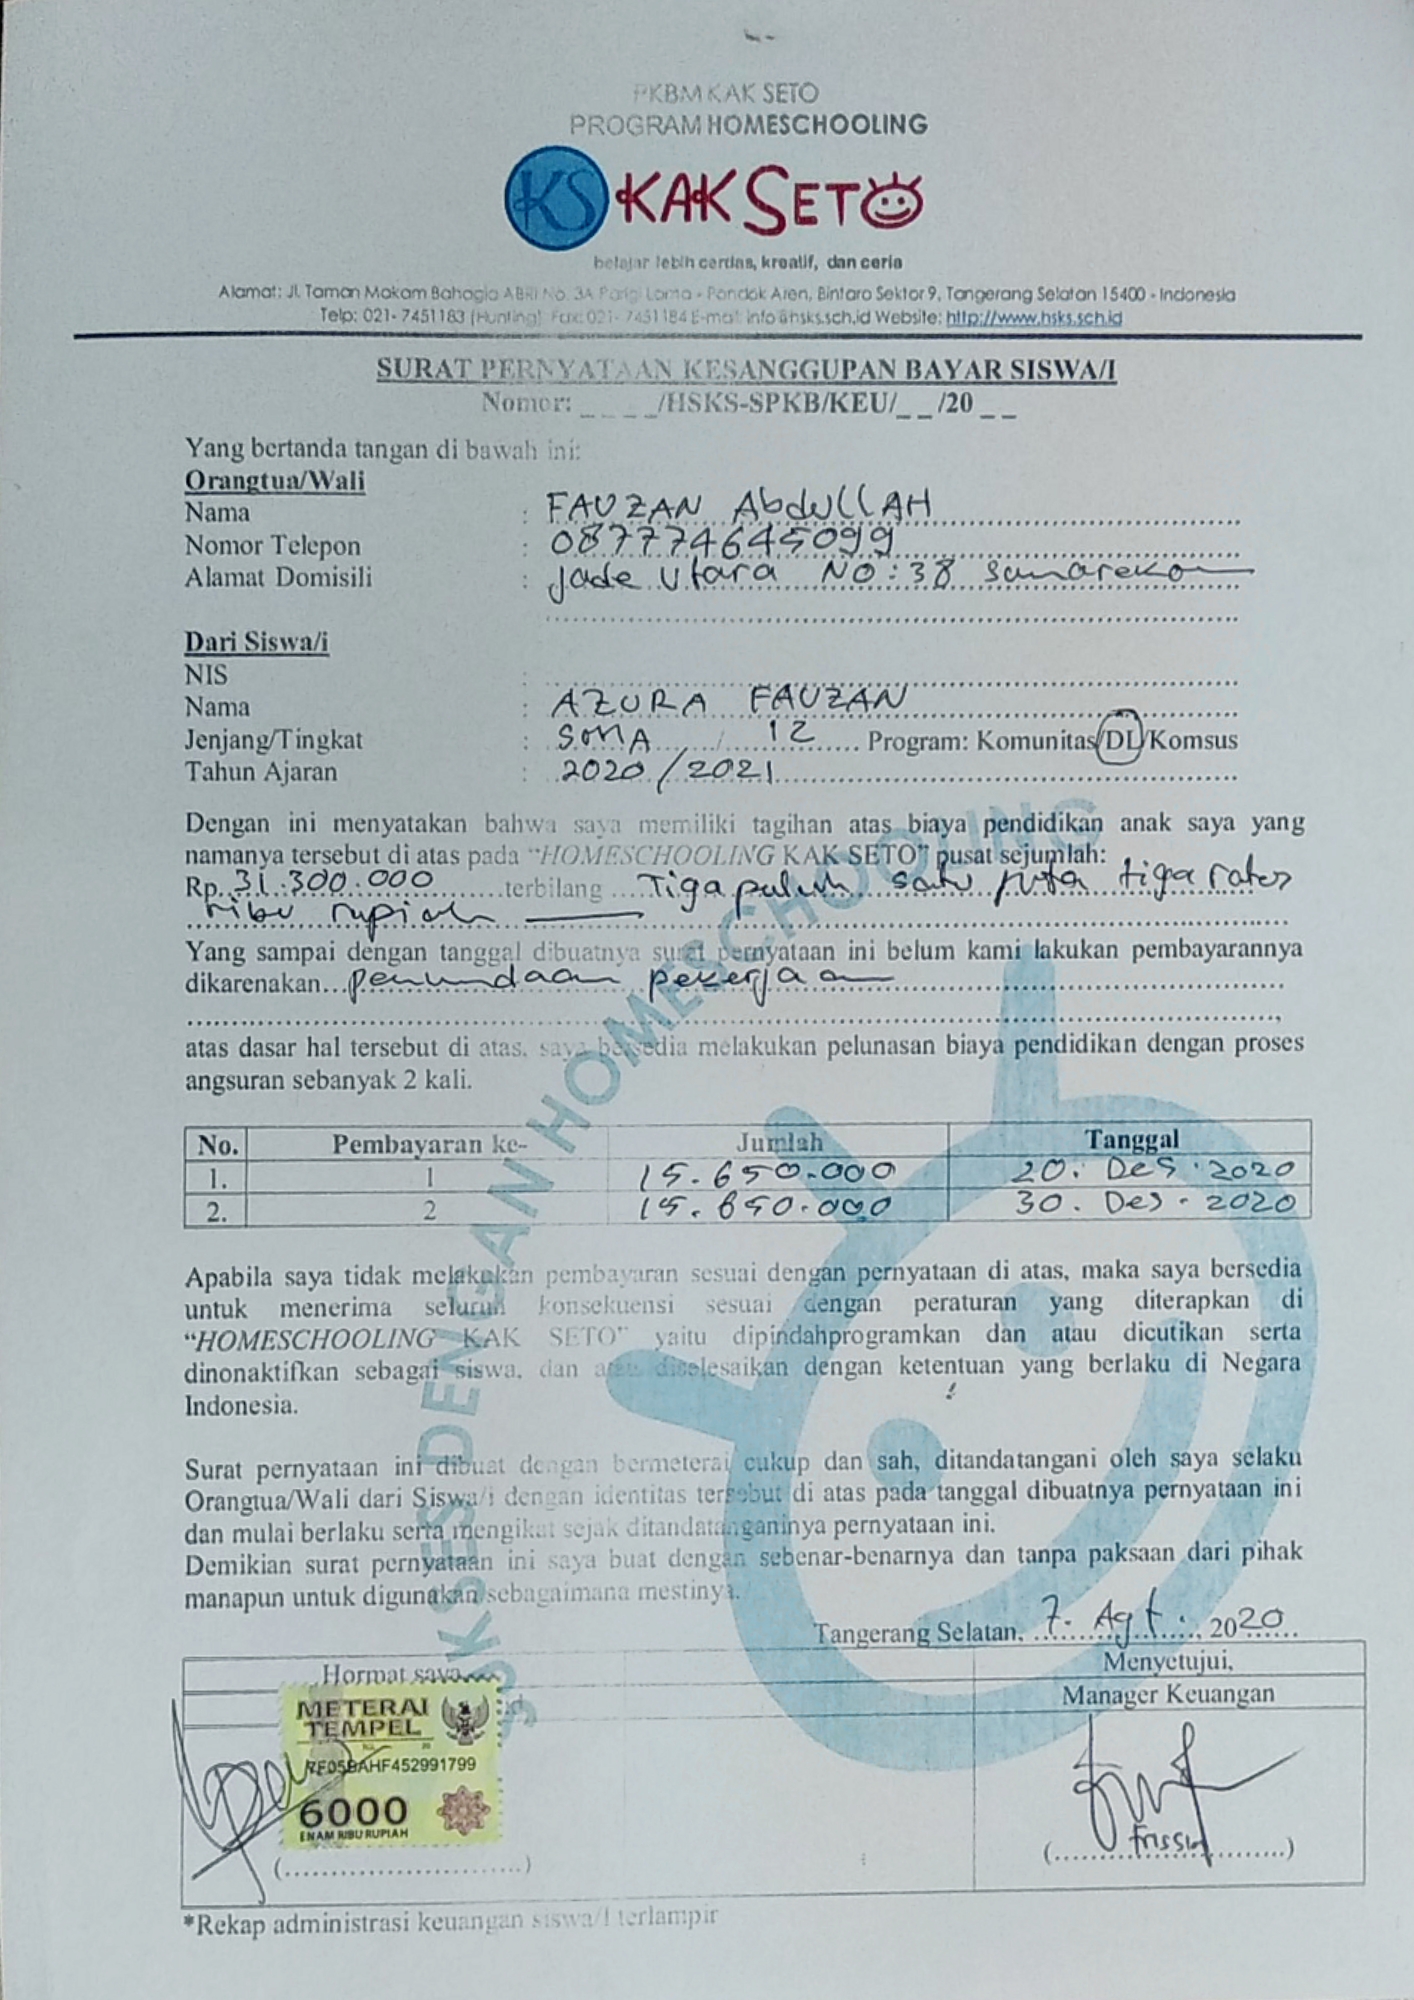 PKBM KAK SETO
PROGRAM HOMESCHOOLING
KS KAK SETO
belajar lebih cerdas, kreatif, dan ceria
Alamat: Jl. Taman Makam Bahagia ABRI No. 3A Parigi Lama - Pondok Aren, Bintaro Sektor 9, Tangerang Selatan 15400 - Indonesia
Telp: 021- 7451183 (Hunting) Fax: 021- 7451184 E-mail: info@hsks.sch.id Website: http://www.hsks.sch.id
SURAT PERNYATAAN KESANGGUPAN BAYAR SISWA/I
Nomor: _ _ _ _/HSKS-SPKB/KEU/_ _ /20 _ _
Yang bertanda tangan di bawah ini:
Orangtua/Wali
Nama : FAUZAN AbdULLAH
Nomor Telepon : 087774645099
Alamat Domisili : Jade Utara NO: 38
Dari Siswa/i
NIS :
Nama : AZURA FAUZAN
Jenjang/Tingkat : SMA / 12 Program: Komunitas/DL/Komsus
Tahun Ajaran : 2020/2021
Dengan ini menyatakan bahwa saya memiliki tagihan atas biaya pendidikan anak saya yang
namanya tersebut di atas pada “HOMESCHOOLING KAK SETO” pusat sejumlah:
Rp. 31.300.000 terbilang Tiga puluh satu juta tiga ratus
ribu rupiah
Yang sampai dengan tanggal dibuatnya surat pernyataan ini belum kami lakukan pembayarannya
dikarenakan... penundaan pekerjaan
atas dasar hal tersebut di atas, saya bersedia melakukan pelunasan biaya pendidikan dengan proses
angsuran sebanyak 2 kali.
No. Pembayaran ke- Jumlah Tanggal
1. 1 15.650.000 20. Des. 2020
2. 2 15.650.000 30. Des. 2020
Apabila saya tidak melakukan pembayaran sesuai dengan pernyataan di atas, maka saya bersedia
untuk menerima seluruh konsekuensi sesuai dengan peraturan yang diterapkan di
“HOMESCHOOLING KAK SETO” yaitu dipindahprogramkan dan atau dicutikan serta
dinonaktifkan sebagai siswa, dan atau diselesaikan dengan ketentuan yang berlaku di Negara
Indonesia.
Surat pernyataan ini dibuat dengan bermeterai cukup dan sah, ditandatangani oleh saya selaku
Orangtua/Wali dari Siswa/i dengan identitas tersebut di atas pada tanggal dibuatnya pernyataan ini
dan mulai berlaku serta mengikat sejak ditandatanganinya pernyataan ini.
Demikian surat pernyataan ini saya buat dengan sebenar-benarnya dan tanpa paksaan dari pihak
manapun untuk digunakan sebagaimana mestinya.
Tangerang Selatan, 7. Agt. 2020
Hormat saya Menyetujui,
Manager Keuangan
METERAI
TEMPEL
TGL 20
6000
ENAM RIBU RUPIAH
(........................) (........................)
*Rekap administrasi keuangan siswa/I terlampir
DENGAN HOMESCHOOLING